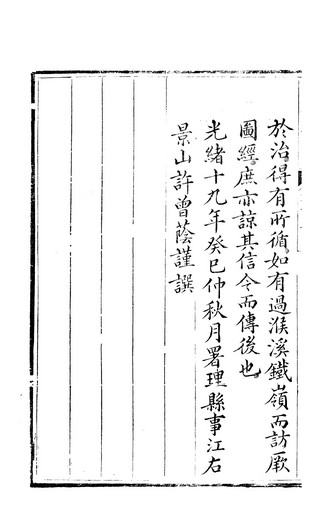 於治得有所循如有過猴溪鐵嶺而訪厥
圖經庶亦諒其信今而傳後也
光緒十九年癸巳仲秋月署理縣事江右
景山許曾蔭謹譔